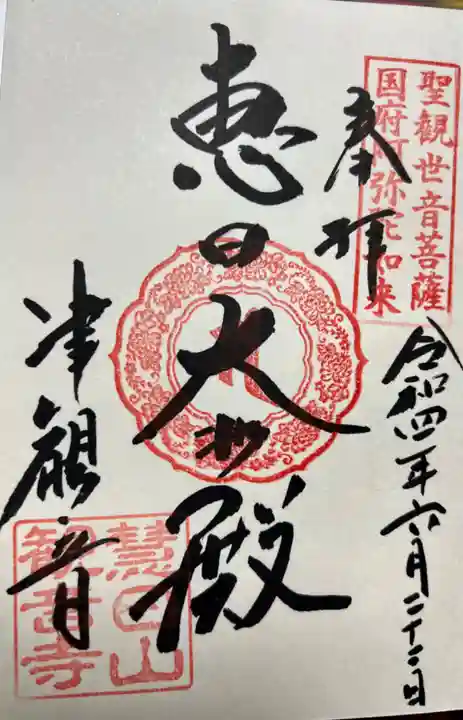 聖観世音菩薩
国府阿弥陀如来
奉拝
令和四年六月二十二日
恵日大
殿
津観音
慧日山
観音寺